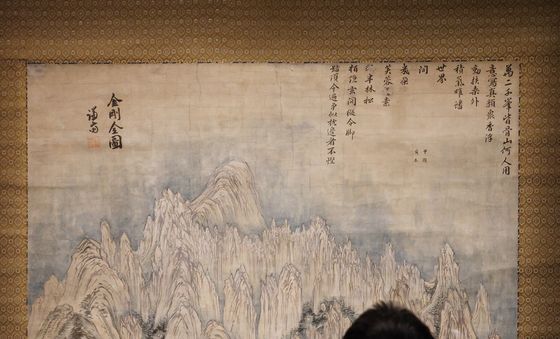 萬二千峯皆骨山何人用
意寫眞顔衆香浮
動扶桑外
積氣雄蟠
世界
間
幾朶
芙蓉揚素
彩半林松
栢隱玄關縱令脚
踏須今遍爭似枕邊看不慳
甲寅
冬題
金剛全圖
謙齋